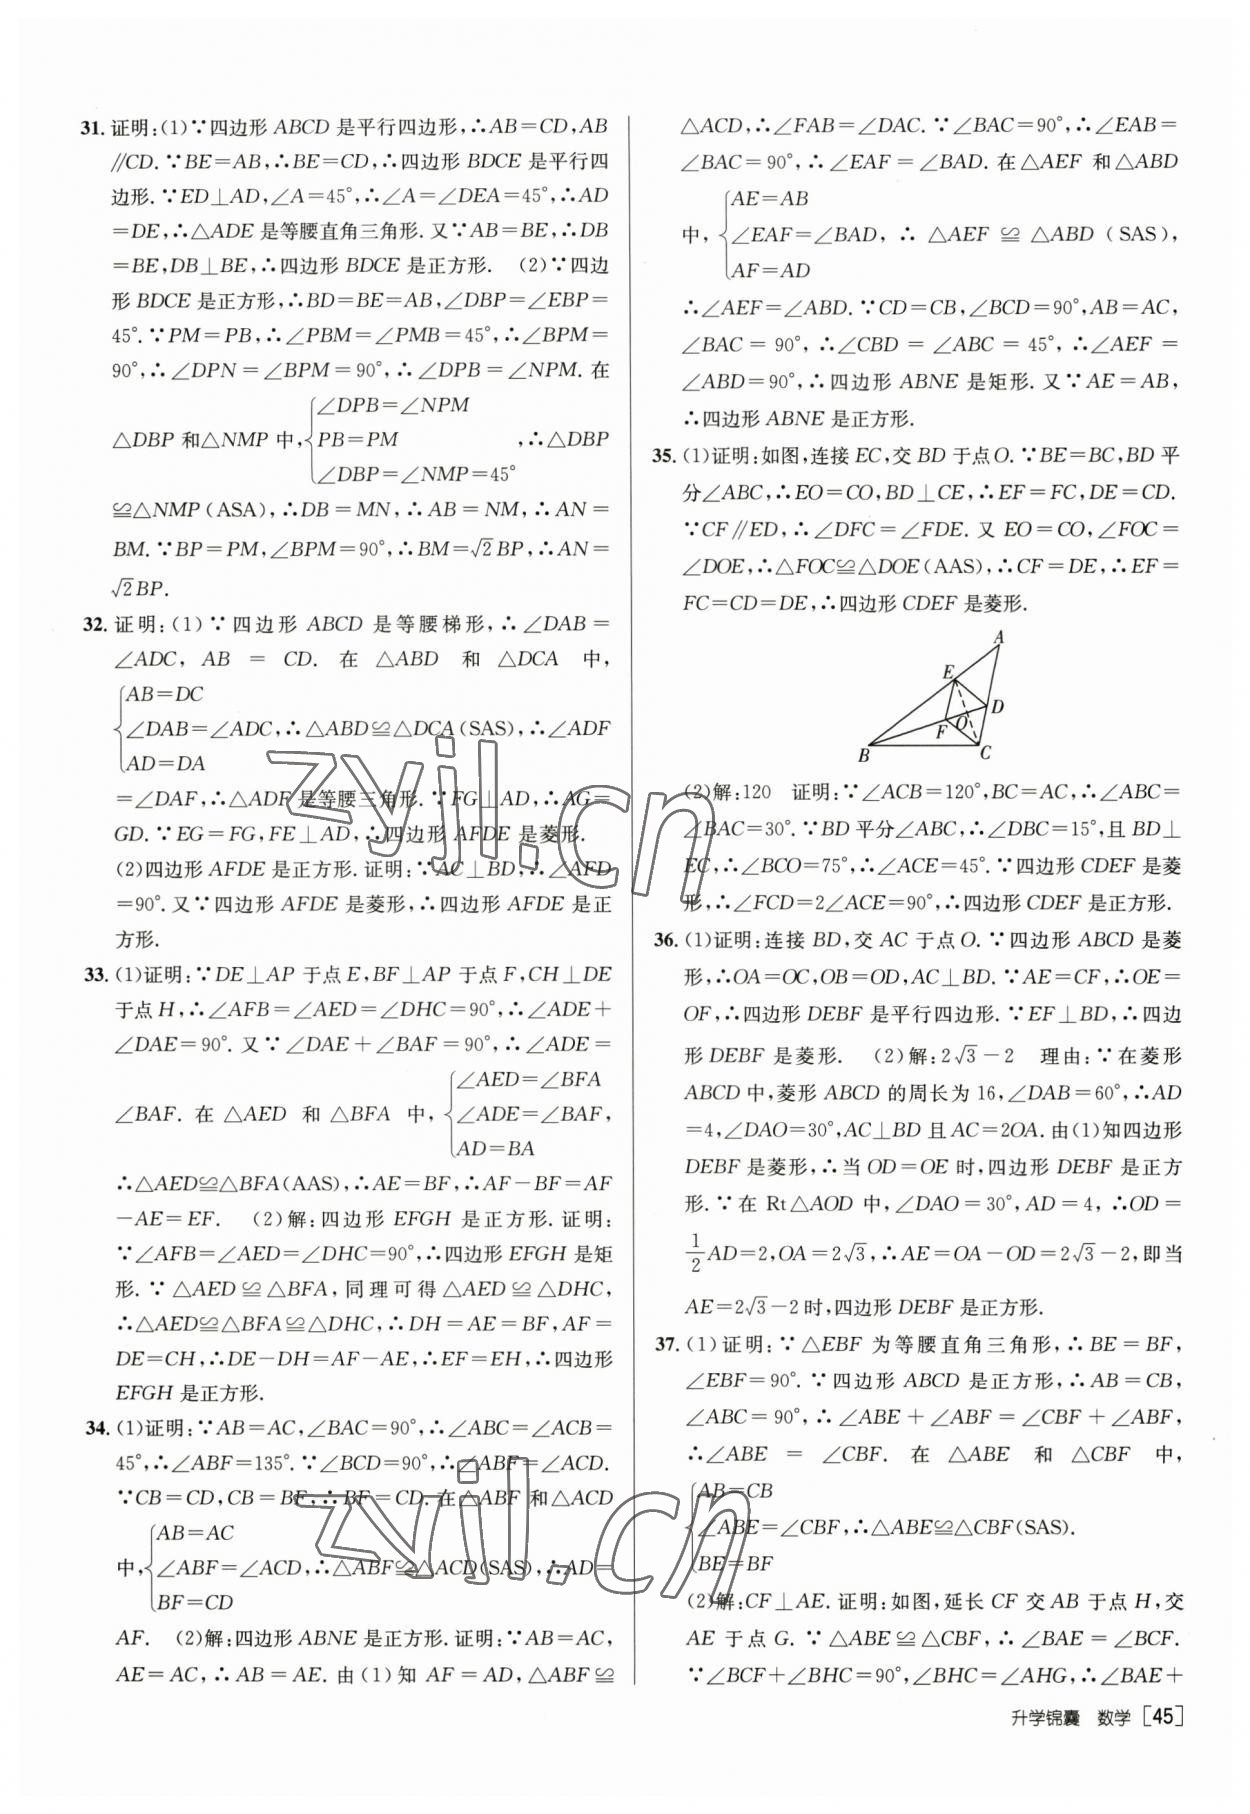 31. 证明:(1)∵四边形 ABCD 是平行四边形,∴AB=CD,AB
∥CD.∵BE=AB,∴BE=CD,∴四边形 BDCE 是平行四
边形.∵ED⊥AD,∠A=45°,∴∠A=∠DEA=45°,∴AD
=DE,∴△ADE 是等腰直角三角形.又∵AB=BE,∴DB
=BE,DB⊥BE,∴四边形 BDCE 是正方形. (2)∵四边
形 BDCE 是正方形,∴BD=BE=AB,∠DBP=∠EBP=
45°.∵PM=PB,∴∠PBM=∠PMB=45°,∴∠BPM=
90°,∴∠DPN=∠BPM=90°,∴∠DPB=∠NPM.在
△DBP 和△NMP 中,{∠DPB=∠NPM
PB=PM
∠DBP=∠NMP=45°
,∴△DBP
≌△NMP(ASA),∴DB=MN,∴AB=NM,∴AN=
BM.∵BP=PM,∠BPM=90°,∴BM=√2BP,∴AN=
√2BP.
32. 证明:(1)∵四边形 ABCD 是等腰梯形,∴∠DAB=
∠ADC,AB=CD.在△ABD 和△DCA 中,
{AB=DC
∠DAB=∠ADC,∴△ABD≌△DCA(SAS),∴∠ADF
AD=DA
=∠DAF,∴△ADF 是等腰三角形.∵FG⊥AD,∴AG=
GD.∵EG=FG,FE⊥AD,∴四边形 AFDE 是菱形.
(2)四边形 AFDE 是正方形.证明:∵AC⊥BD,∴∠AFD
=90°.又∵四边形 AFDE 是菱形,∴四边形 AFDE 是正
方形.
33. (1)证明:∵DE⊥AP 于点 E,BF⊥AP 于点 F,CH⊥DE
于点 H,∴∠AFB=∠AED=∠DHC=90°,∴∠ADE+
∠DAE=90°.又∵∠DAE+∠BAF=90°,∴∠ADE=
∠BAF.在△AED 和△BFA 中,{∠AED=∠BFA
∠ADE=∠BAF,
AD=BA
∴△AED≌△BFA(AAS),∴AE=BF,∴AF-BF=AF
-AE=EF. (2)解:四边形 EFGH 是正方形.证明:
∵∠AFB=∠AED=∠DHC=90°,∴四边形 EFGH 是矩
形.∵△AED≌△BFA,同理可得△AED≌△DHC,
∴△AED≌△BFA≌△DHC,∴DH=AE=BF,AF=
DE=CH,∴DE-DH=AF-AE,∴EF=EH,∴四边形
EFGH 是正方形.
34. (1)证明:∵AB=AC,∠BAC=90°,∴∠ABC=∠ACB=
45°,∴∠ABF=135°.∵∠BCD=90°,∴∠ABF=∠ACD.
∵CB=CD,CB=BF,∴BF=CD.在△ABF 和△ACD
中,{AB=AC
∠ABF=∠ACD,∴△ABF≌△ACD(SAS),∴AD=
BF=CD
AF. (2)解:四边形 ABNE 是正方形.证明:∵AB=AC,
AE=AC,∴AB=AE.由(1)知 AF=AD,△ABF≌
△ACD,∴∠FAB=∠DAC.∵∠BAC=90°,∴∠EAB=
∠BAC=90°,∴∠EAF=∠BAD.在△AEF 和△ABD
中,{AE=AB
∠EAF=∠BAD,∴△AEF≌△ABD(SAS),
AF=AD
∴∠AEF=∠ABD.∵CD=CB,∠BCD=90°,AB=AC,
∠BAC=90°,∴∠CBD=∠ABC=45°,∴∠AEF=
∠ABD=90°,∴四边形 ABNE 是矩形.又∵AE=AB,
∴四边形 ABNE 是正方形.
35. (1)证明:如图,连接 EC,交 BD 于点 O.∵BE=BC,BD 平
分∠ABC,∴EO=CO,BD⊥CE,∴EF=FC,DE=CD.
∵CF∥ED,∴∠DFC=∠FDE.又 EO=CO,∠FOC=
∠DOE,∴△FOC≌△DOE(AAS),∴CF=DE,∴EF=
FC=CD=DE,∴四边形 CDEF 是菱形.
A
E
D
F O
B
C
(2)解:120 证明:∵∠ACB=120°,BC=AC,∴∠ABC=
∠BAC=30°.∵BD 平分∠ABC,∴∠DBC=15°,且 BD⊥
EC,∴∠BCO=75°,∴∠ACE=45°.∵四边形 CDEF 是菱
形,∴∠FCD=2∠ACE=90°,∴四边形 CDEF 是正方形.
36. (1)证明:连接 BD,交 AC 于点 O.∵四边形 ABCD 是菱
形,∴OA=OC,OB=OD,AC⊥BD.∵AE=CF,∴OE=
OF,∴四边形 DEBF 是平行四边形.∵EF⊥BD,∴四边
形 DEBF 是菱形. (2)解:2√3-2 理由:∵在菱形
ABCD 中,菱形 ABCD 的周长为 16,∠DAB=60°,∴AD
=4,∠DAO=30°,AC⊥BD 且 AC=2OA.由(1)知四边形
DEBF 是菱形,∴当 OD=OE 时,四边形 DEBF 是正方
形.∵在 Rt△AOD 中,∠DAO=30°,AD=4,∴OD=
1/2AD=2,OA=2√3,∴AE=OA-OD=2√3-2,即当
AE=2√3-2时,四边形 DEBF 是正方形.
37. (1)证明:∵△EBF 为等腰直角三角形,∴BE=BF,
∠EBF=90°.∵四边形 ABCD 是正方形,∴AB=CB,
∠ABC=90°,∴∠ABE+∠ABF=∠CBF+∠ABF,
∴∠ABE=∠CBF.在△ABE 和△CBF 中,
{AB=CB
∠ABE=∠CBF,∴△ABE≌△CBF(SAS).
BE=BF
(2)解:CF⊥AE.证明:如图,延长 CF 交 AB 于点 H,交
AE 于点 G.∵△ABE≌△CBF,∴∠BAE=∠BCF.
∵∠BCF+∠BHC=90°,∠BHC=∠AHG,∴∠BAE+
升学锦囊 数学 [45]
zyjl.cn
zyjl.cn